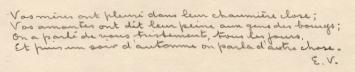 Vos mères ont pleuré dans leur chaumière close ;
Vos amantes ont dit leur peine aux gens des bourgs ;
On a parlé de vous tristement, tous les jours,
Et puis un soir d'automne on parla d'autre chose.
E. V.